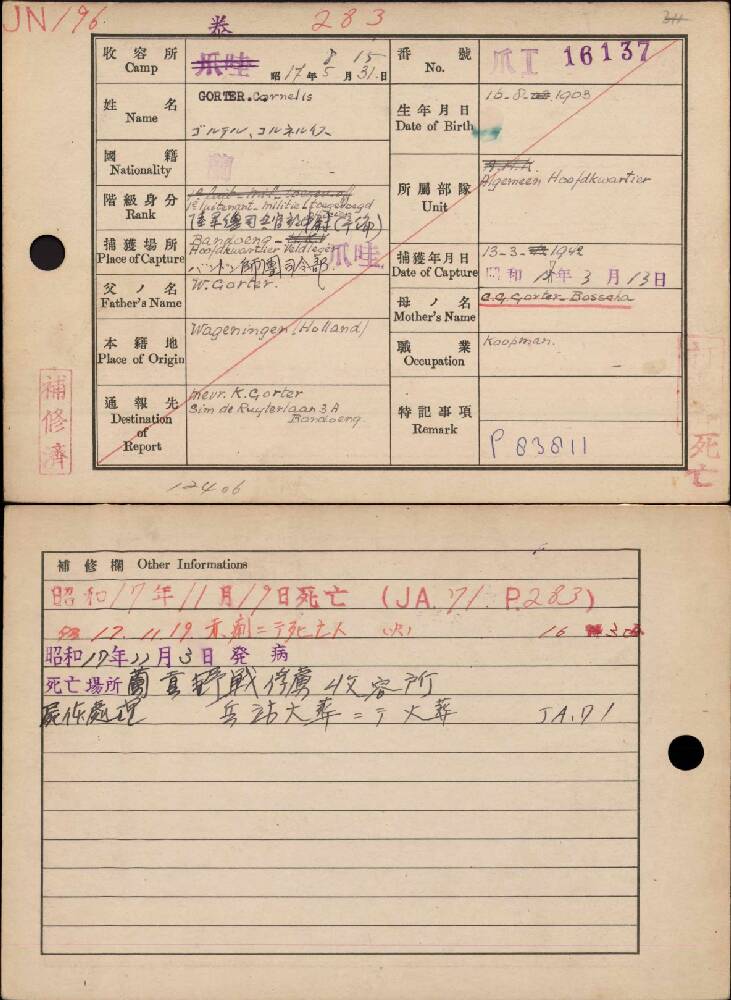 JN/196
283
收容所
Camp
爪哇
8 15
昭17年5月31日
番號
No.
爪I 16137
姓名
Name
GORTER.Cornelis
ゴルテル、コルネルイス
生年月日
Date of Birth
16-8-1903
國籍
Nationality
蘭
階級身分
Rank
1e luitenant militie toegevoegd
所屬部隊
Unit
Algemeen Hoofdkwartier
捕獲場所
Place of Capture
Bandoeng
Hoofdkwartier Veldleger
バンドン師團司令部
爪哇
捕獲年月日
Date of Capture
13-3-1942
昭和17年3月13日
父ノ名
Father's Name
W. Gorter.
母ノ名
Mother's Name
C.G. Gorter-Bosscha
本籍地
Place of Origin
Wageningen (Holland)
職業
Occupation
Koopman.
通報先
Destination
of
Report
mevr. K. Gorter
Sim de Ruyterlaan 3A
Bandoeng
特記事項
Remark
P 83811
補修濟
死亡
12406
補修欄 Other Informations
昭和17年11月19日死亡 (JA.71.P.283)
17.11.19. 赤痢ニテ死亡
昭和17年11月3日発病
死亡場所
屍体處理 火葬ニテ火葬 JA.71